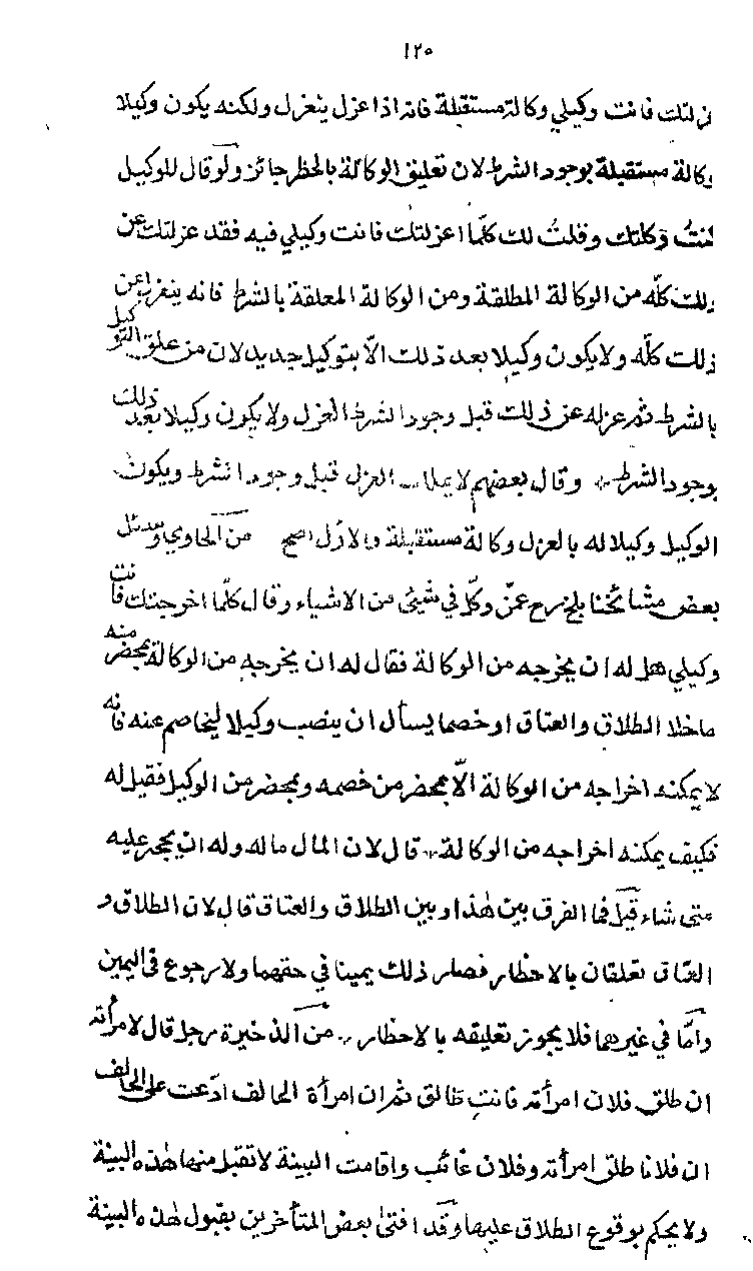 ١٢٥
عزلتك فانت وكيلي وكالة مستقبلة فانه اذا عزل ينعزل ولكنه يكون وكيلا
وكالة مستقبلة بوجود الشرط لان تعليق الوكالة بالخطر جائز ولو قال للوكيل
كنتُ وكلتك وقلتُ لك كلّما اعزلتك فانت وكيلي فيه فقد عزلتك عن
ذلك كلّه من الوكالة المطلقة ومن الوكالة المعلقة بالشرط فانه ينعزل عن
ذلك كلّه ولا يكون وكيلا بعد ذلك الّا بتوكيل جديد لان من علق التوكيل
بالشرط ثم عزله عن ذلك قبل وجود الشرط العزل ولا يكون وكيلا بعد ذلك
بوجود الشرط وقال بعضهم لا يملك العزل قبل وجود الشرط ويكون
الوكيل وكيلا له بالعزل وكالة مستقبلة والاول اصح من الحاوي وسئل
بعض مشائخنا بلخ عمّن وكّل في شيئ من الاشياء وقال كلّما اخرجتك فانت
وكيلي هل له ان يخرجه من الوكالة فقال له ان يخرجه من الوكالة بمحضر منه
ماخلا الطلاق والعتاق او خصما يسأل ان ينصب وكيلا ليخاصم عنه فانه
لا يمكنه اخراجه من الوكالة الّا بمحضر من خصمه وبمحضر من الوكيل فقيل له
فكيف يمكنه اخراجه من الوكالة قال لان المال ماله وله ان يحجر عليه
متى شاء قيل فما الفرق بين هذا وبين الطلاق والعتاق قال لان الطلاق و
العتاق تعلقان بالاخطار فصار ذلك يمينا في حقهما ولا رجوع فى اليمين
وأمّا في غيرهما فلا يجوز تعليقه بالاخطار من الذخيرة رجل قال لامرأته
ان طلق فلان امرأته فانت طالق ثم ان امرأة الحالف ادّعت على الحالف
ان فلانا طلق امرأته وفلان غائب واقامت البينة لا تقبل منها هذه البينة
ولا يحكم بوقوع الطلاق عليها وقد افتى بعض المتأخرين بقبول هذه البينة